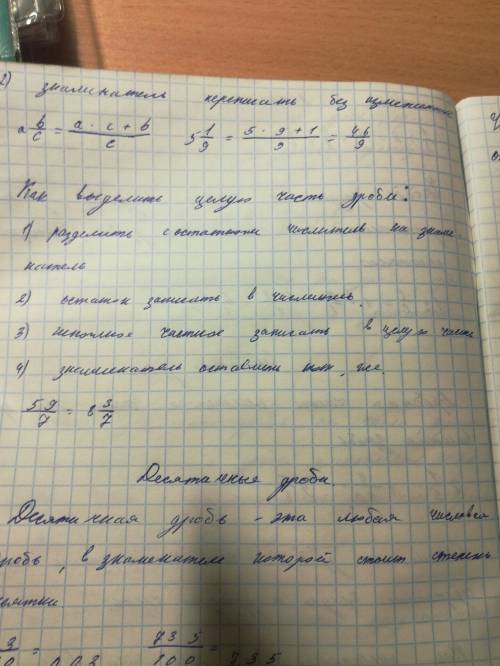 2) знаменатель переписать без изменения
a b/c = a · c + b/c 5 1/9 = 5 · 9 + 1/9 = 46/9
Как выделить целую часть дроби:
1) разделить с остатком числитель на знаме
натель
2) остаток записать в числитель.
3) неполное частное записать в целую часть
4) знаменатель оставить тот же.
59/7 = 8 3/7
Десятичные дроби.
Десятичная дробь - это любая числовая
робь, в знаменателе которой стоит степень
сятки
735/100 =